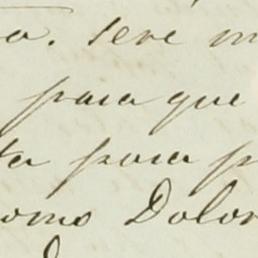 a. sere m
para que
ta para p
como Dolor